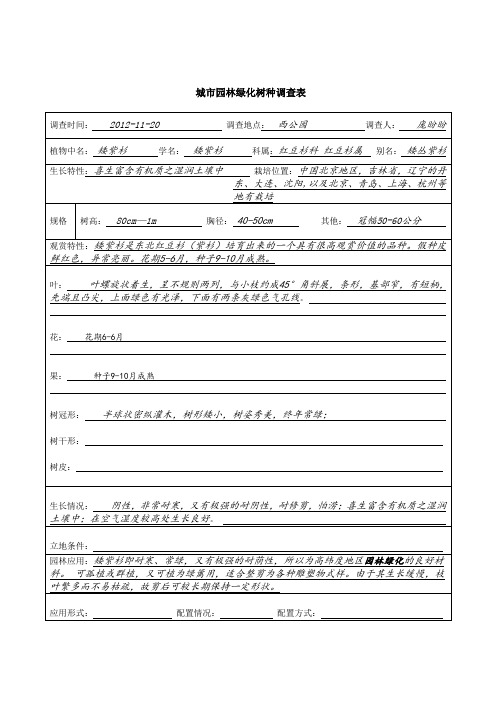 城市园林绿化树种调查表
调查时间： 2012-11-20 调查地点： 西公园 调查人： 庞盼盼
植物中名： 矮紫杉 学名： 矮紫杉 科属：红豆杉科 红豆杉属 别名： 矮丛紫杉
生长特性：喜生富含有机质之湿润土壤中 栽培位置：中国北京地区，吉林省，辽宁的丹
东、大连、沈阳,以及北京、青岛、上海、杭州等
地有栽培
规格 树高： 80cm—1m 胸径： 40-50cm 其他： 冠幅50-60公分
观赏特性：矮紫杉是东北红豆杉（紫杉）培育出来的一个具有很高观赏价值的品种。假种皮
鲜红色，异常亮丽。花期5-6月，种子9-10月成熟。
叶： 叶螺旋状着生，呈不规则两列，与小枝约成45°角斜展，条形，基部窄，有短柄，
先端且凸尖，上面绿色有光泽，下面有两条灰绿色气孔线。
花： 花期6-6月
果： 种子9-10月成熟
树冠形： 半球状密纵灌木，树形矮小，树姿秀美，终年常绿；
树干形：
树皮：
生长情况： 阴性，非常耐寒，又有极强的耐阴性，耐修剪，怕涝；喜生富含有机质之湿润
土壤中；在空气湿度较高处生长良好。
立地条件：
园林应用：矮紫杉即耐寒、常绿，又有极强的耐荫性，所以为高纬度地区园林绿化的良好材
料。 可孤植或群植，又可植为绿篱用，适合整剪为各种雕塑物式样。由于其生长缓慢，枝
叶繁多而不易枯疏，故剪后可较长期保持一定形状。
应用形式： 配置情况： 配置方式：